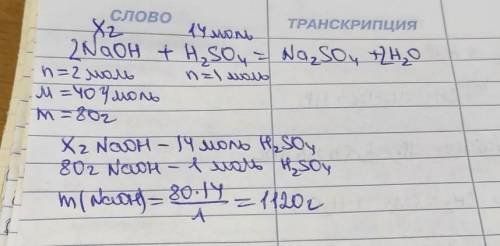 СЛОВО ТРАНСКРИПЦИЯ
Xг 14 моль
2NaOH + H₂SO₄ = Na₂SO₄ + 2H₂O
n = 2 моль n = 1 моль
M = 40 г/моль
m = 80г
Xг NaOH – 14 моль H₂SO₄
80г NaOH – 1 моль H₂SO₄
m(NaOH) = 80·14/1 = 1120г